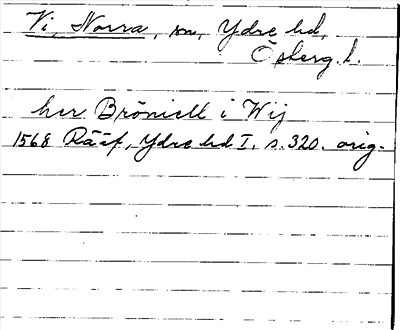 Vi, Norra, sn, Ydre hd,
Ösberg. l.
her Brönielt i Wij
1568 Rääf, Ydre hd I, s. 320. orig.